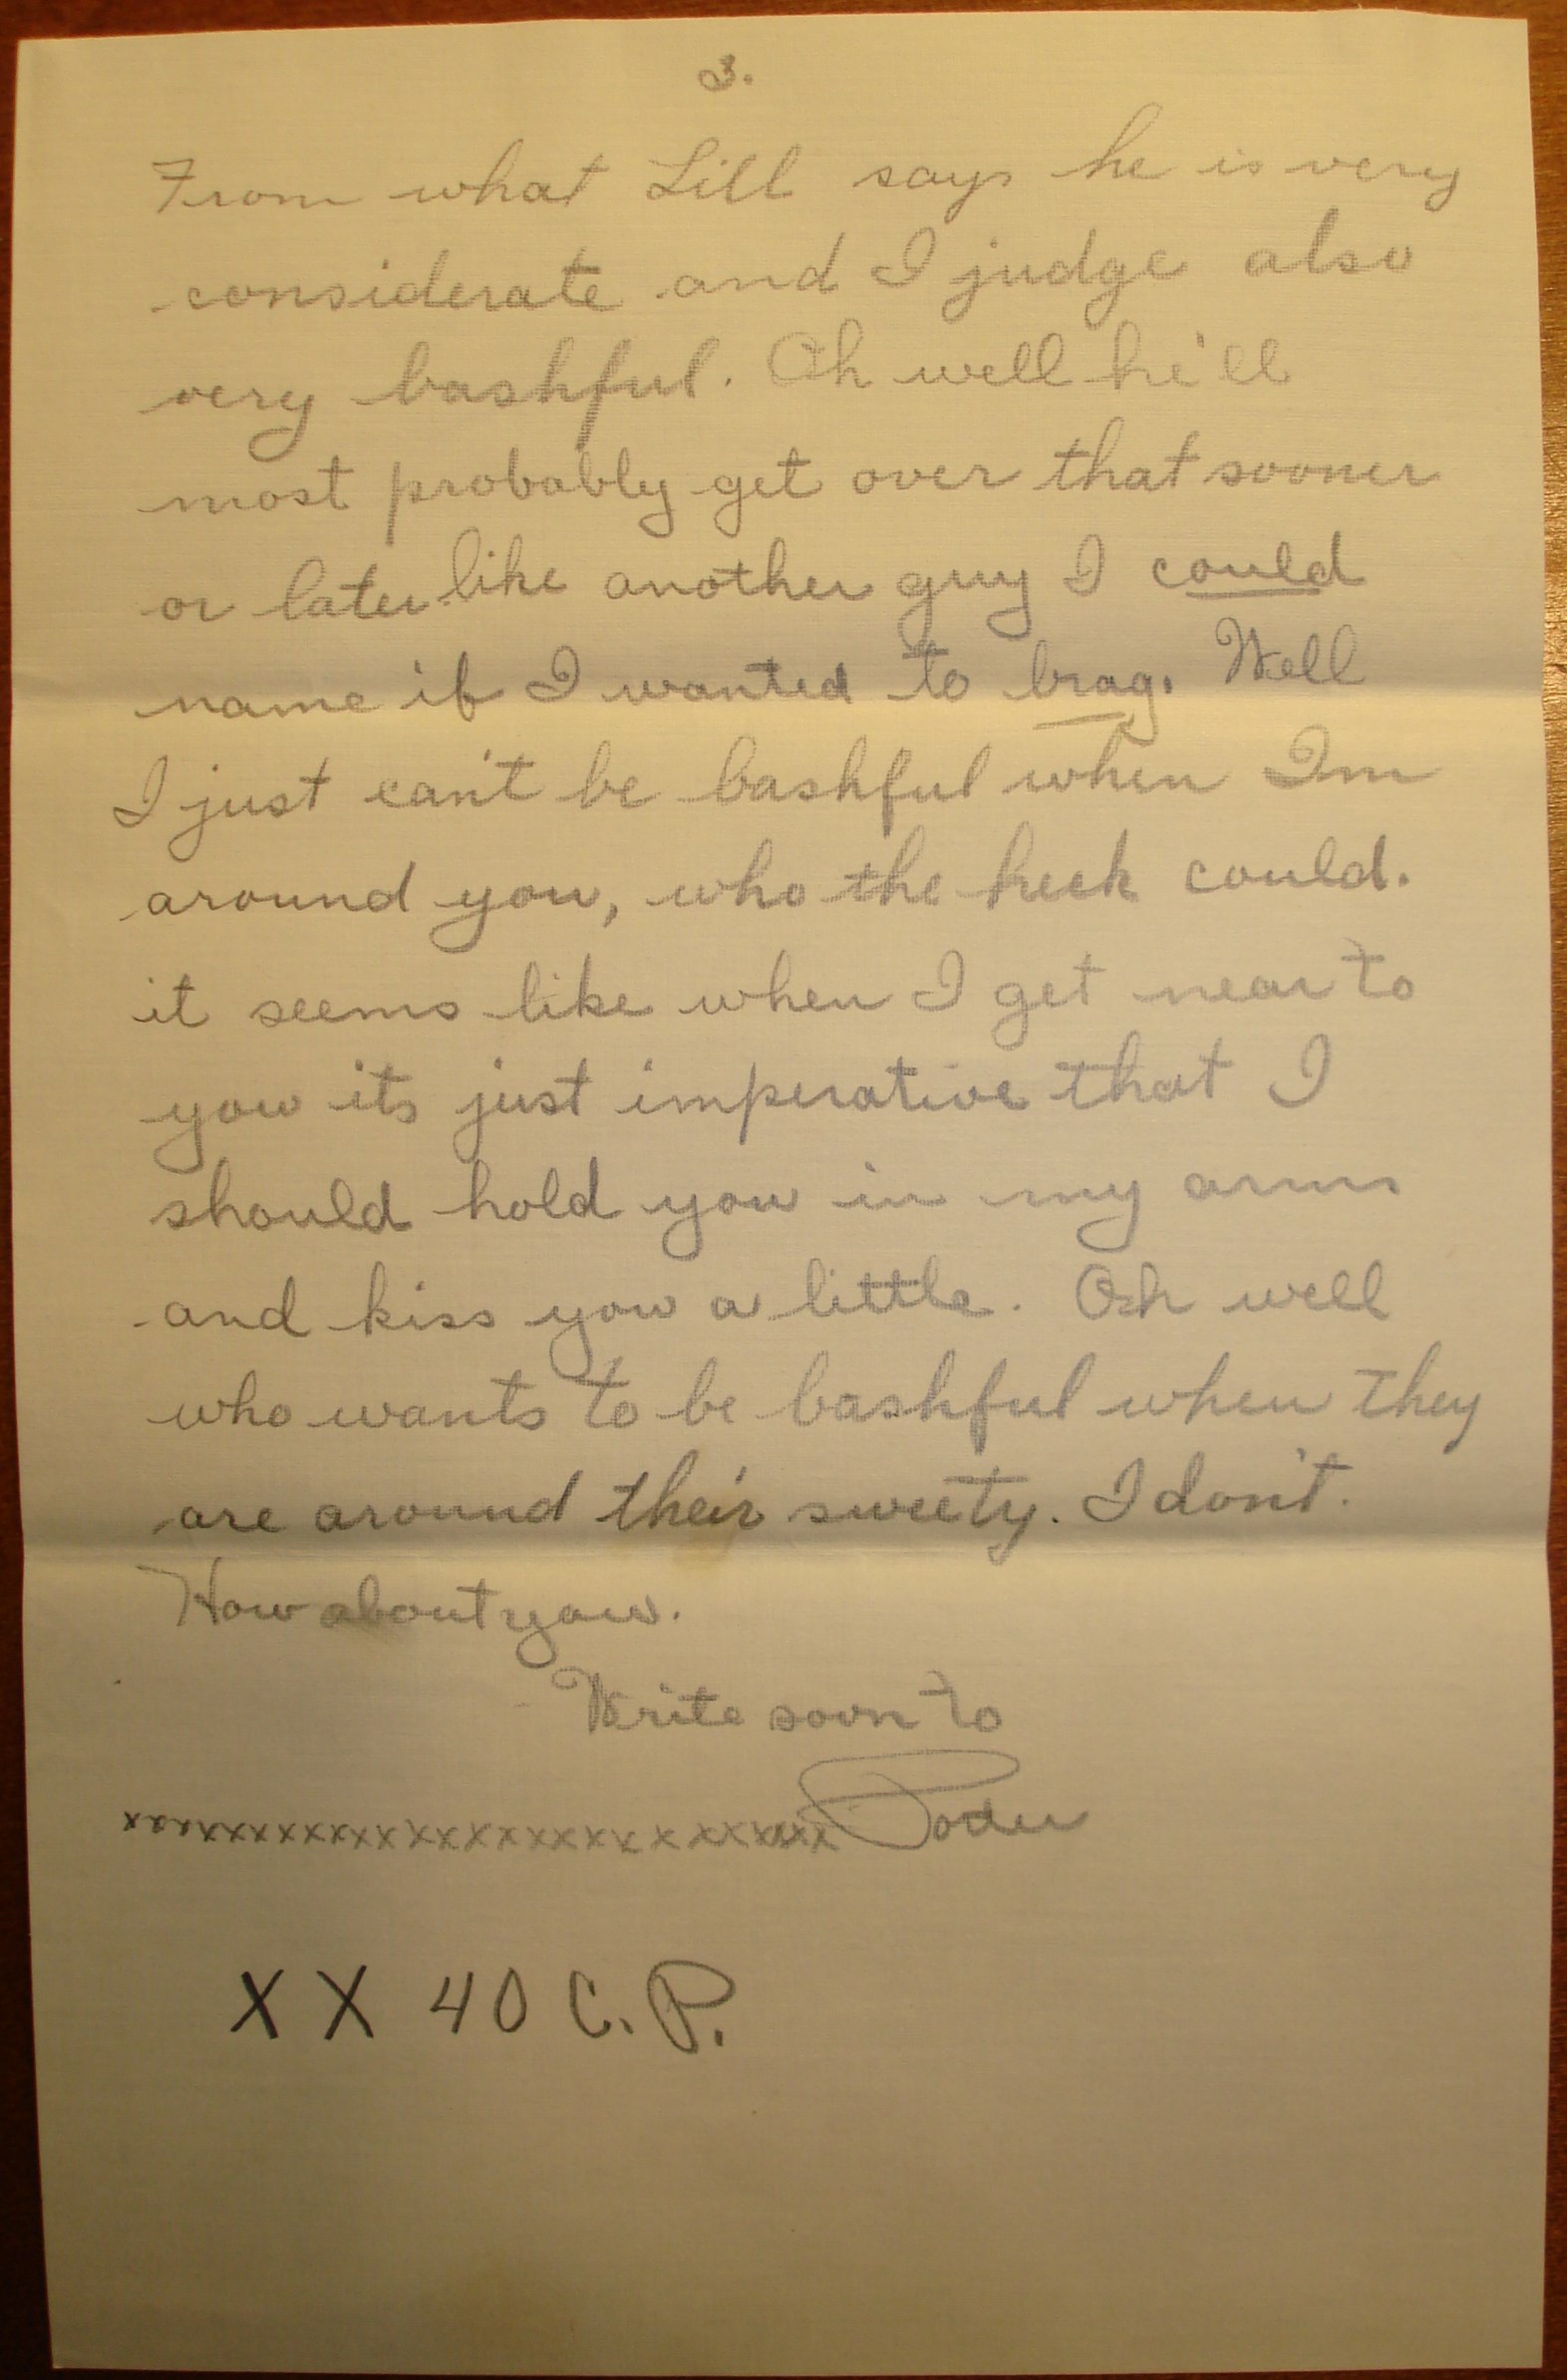 3.
From what Lill says he is very
considerate and I judge also
very bashful. Oh well he'll
most probably get over that sooner
or later like another guy I could
name if I wanted to brag. Well
I just can't be bashful when I'm
around you, who the heck could.
it seems like when I get near to
you its just imperative that I
should hold you in my arms
and kiss you a little. Oh well
who wants to be bashful when they
are around their sweety. I don't.
How about you.
Write soon to
xxxxxxxxxxxxxxxxxxxxxxxxxxxxx
X X 40 C.P.